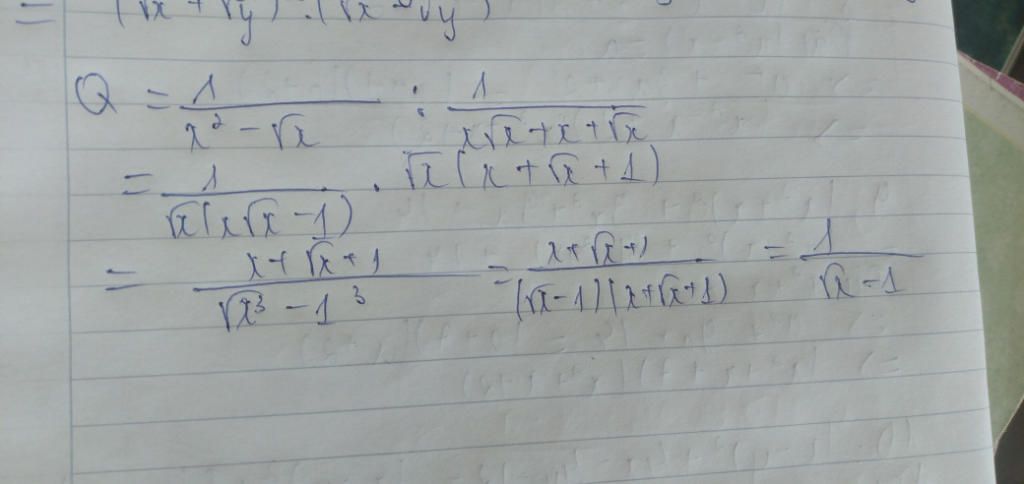 = (√x + √y) . (√x - √y)
Q = 1/(x² - √x) : 1/(x√x + x + √x)
= 1/(√x(x√x - 1)) . √x(x + √x + 1)
= (x + √x + 1)/(√x³ - 1³) = (x + √x + 1)/((√x - 1)(x + √x + 1)) = 1/(√x - 1)